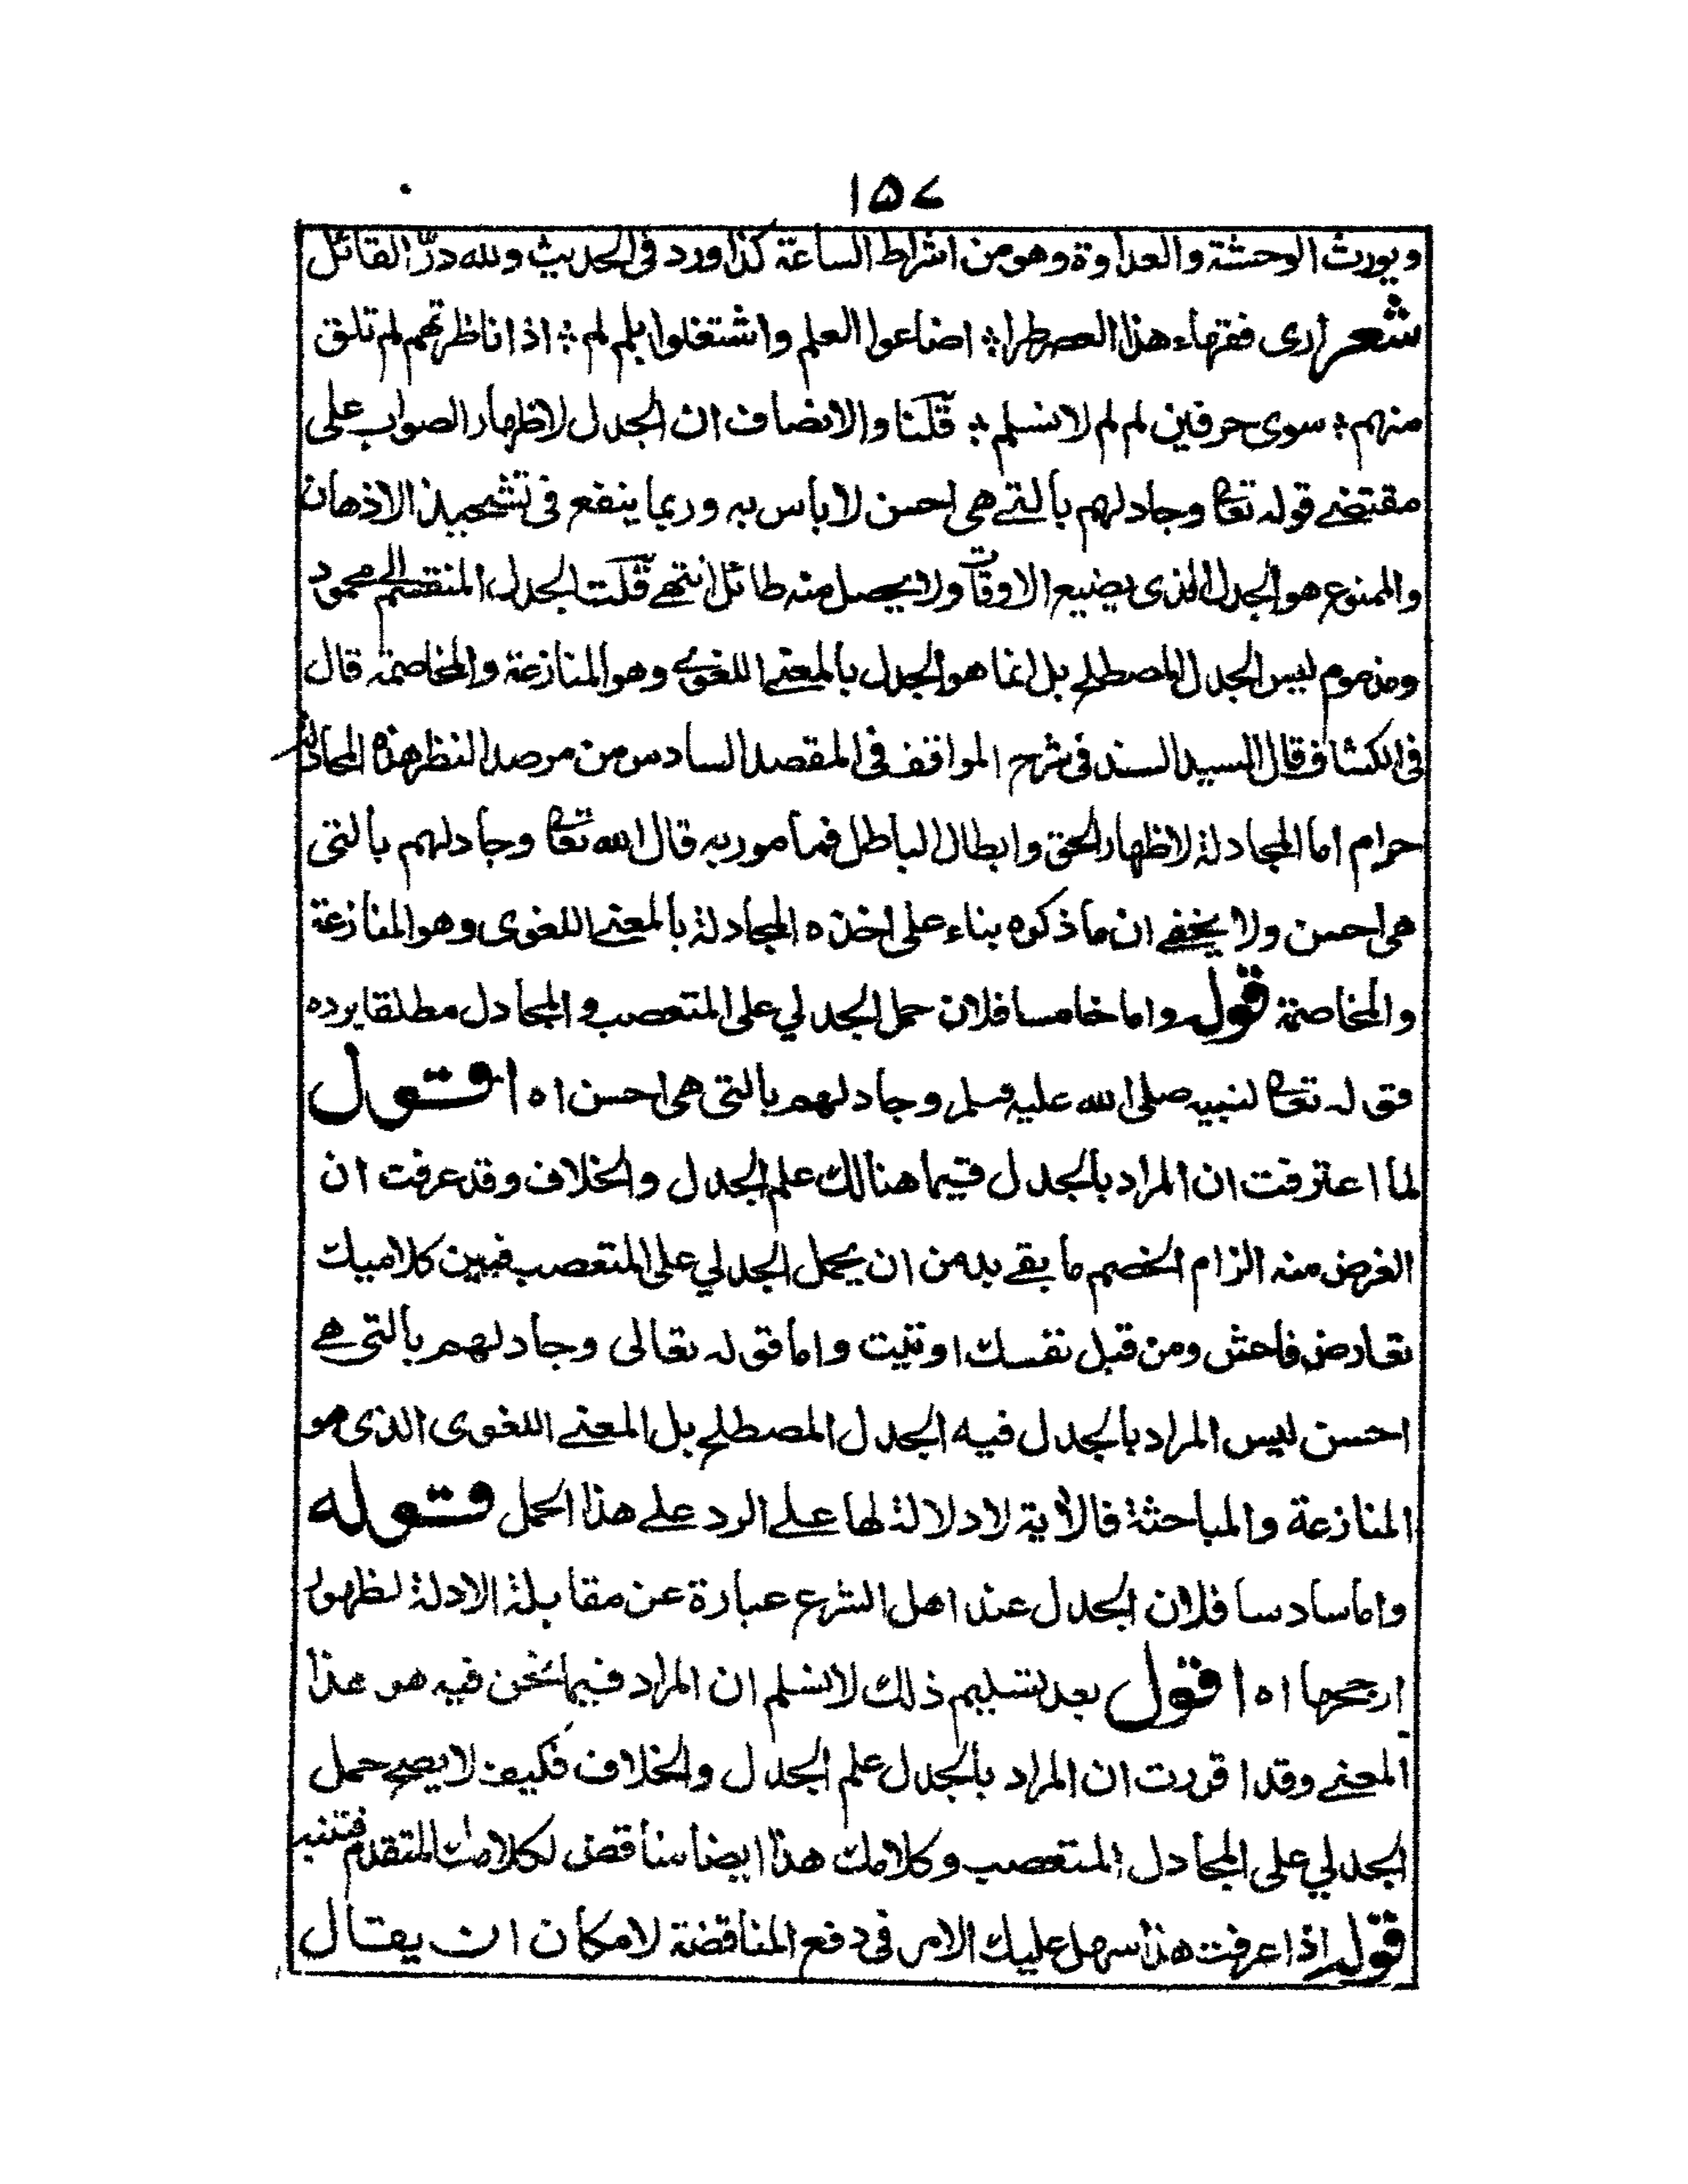 ١٥٧
ويورث الوحشة والعداوة وهو من اشراط الساعة كذا ورد فى الحديث ولله درّ القائل
شعر ارى فقهاء هذا العصر طرا ؞ اضاعوا العلم واشتغلوا بلم لم ؞ اذا ناظرتهم لم تلق
منهم ؞ سوى حرفين لم لم لا نسلم ؞ قلنا والانصاف ان الجدل لاظهار الصواب على
مقتضے قوله تعا وجادلهم بالتے هى احسن لا باس به وربما ينفع فى تشحيذ الاذهان
والممنوع هو الجدل الذى يضيع الاوقات ولا يحصل منه طائل انتهے قلت الجدل المنقسم الى محمود
ومذموم ليس الجدل المصطلح بل انما هو الجدل بالمعنے اللغوے وهو المنازعة والمخاصمة قال
فى الكشاف قال السيد السند فى شرح المواقف فى المقصد السادس من مرصد النظر هذه المجادلة
حرام اما المجادلة لاظهار الحق وابطال الباطل فمامور به قال الله تعا وجادلهم بالتى
هى احسن ولا يخفے ان ما ذكره بناء على اخذه المجادلة بالمعنے اللغوى وهو المنازعة
والمخاصمة قوله واما خامسا فلان حمل الجدلي على المتعصب والمجادل مطلقا يرده
قوله تعا لنبيه صلى الله عليه وسلم وجادلهم بالتى هى احسن اه اقول
لما اعترفت ان المراد بالجدل فيما هنالك علم الجدل والخلاف وقد عرفت ان
الغرض منه الزام الخصم ما بقے بد من ان يحمل الجدلي على المتعصب فبين كلاميك
تعارض فاحش ومن قبل نفسك اوتيت واما قوله تعالى وجادلهم بالتى هے
احسن ليس المراد بالجدل فيه الجدل المصطلح بل المعنے اللغوى الذى هو
المنازعة والمباحثة فالأية لا دلالة لها علے الرد علے هذا الحمل قوله
واما سادسا فلان الجدل عند اهل الشرع عبارة عن مقابلة الادلة لظهور
ارجحها اه اقول بعد تسليم ذلك لا نسلم ان المراد فيما نحن فيه هو هذا
المعنے وقد اقررت ان المراد بالجدل علم الجدل والخلاف فكيف لا يصح حمل
الجدلي على المجادل المتعصب وكلامك هذا ايضا مناقض لكلامك المتقدم فتنبه
قوله اذا عرفت هذا سهل عليك الامر فى دفع المناقضة لامكان ان يقال